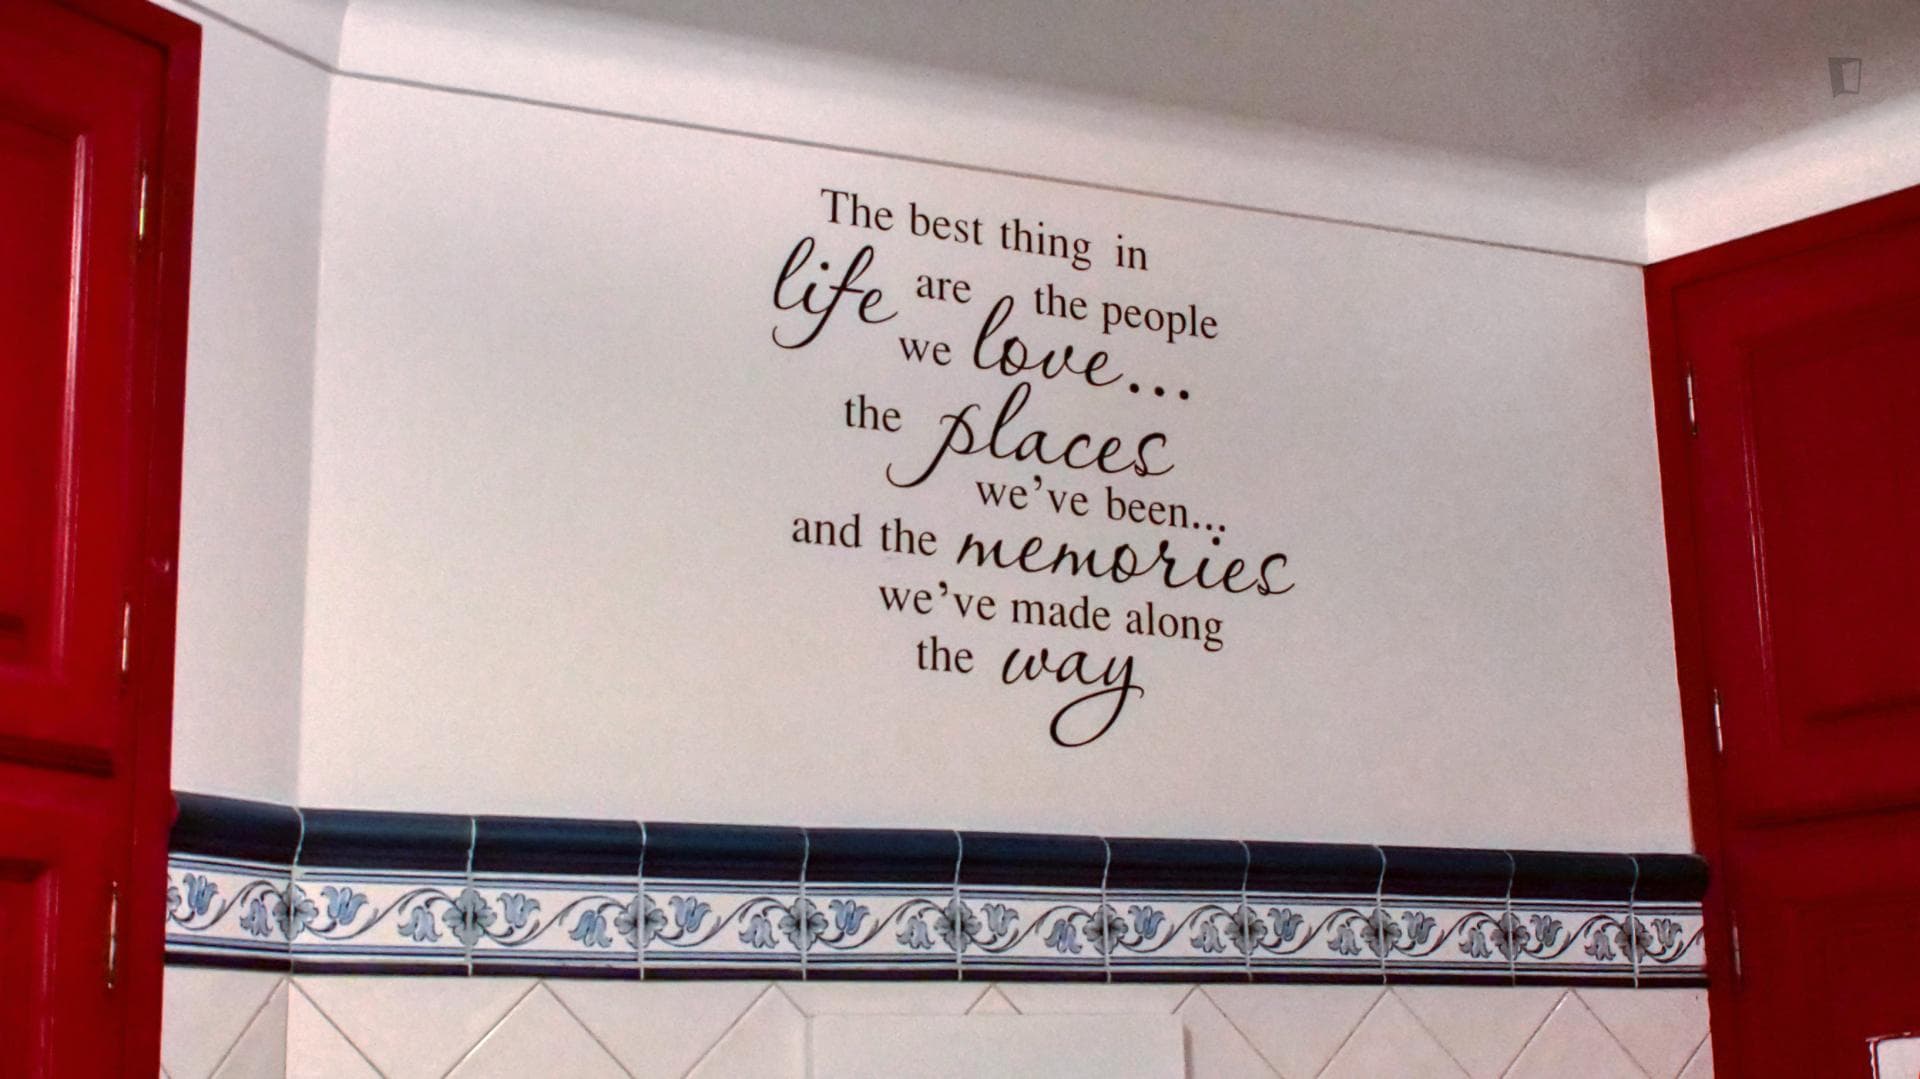 The best thing in
life are the people
we love...
the places
we've been...
and the memories
we've made along
the way